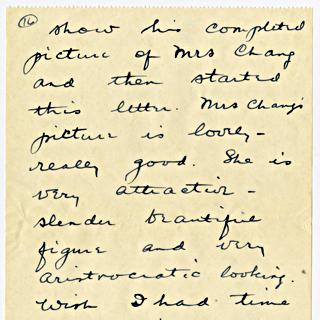 16
show his completed
picture of Mrs Chang
and then started
this letter. Mrs Chang's
picture is lovely -
really good. She is
very attractive -
slender beautiful
figure and very
aristrocratic looking.
Wish I had time